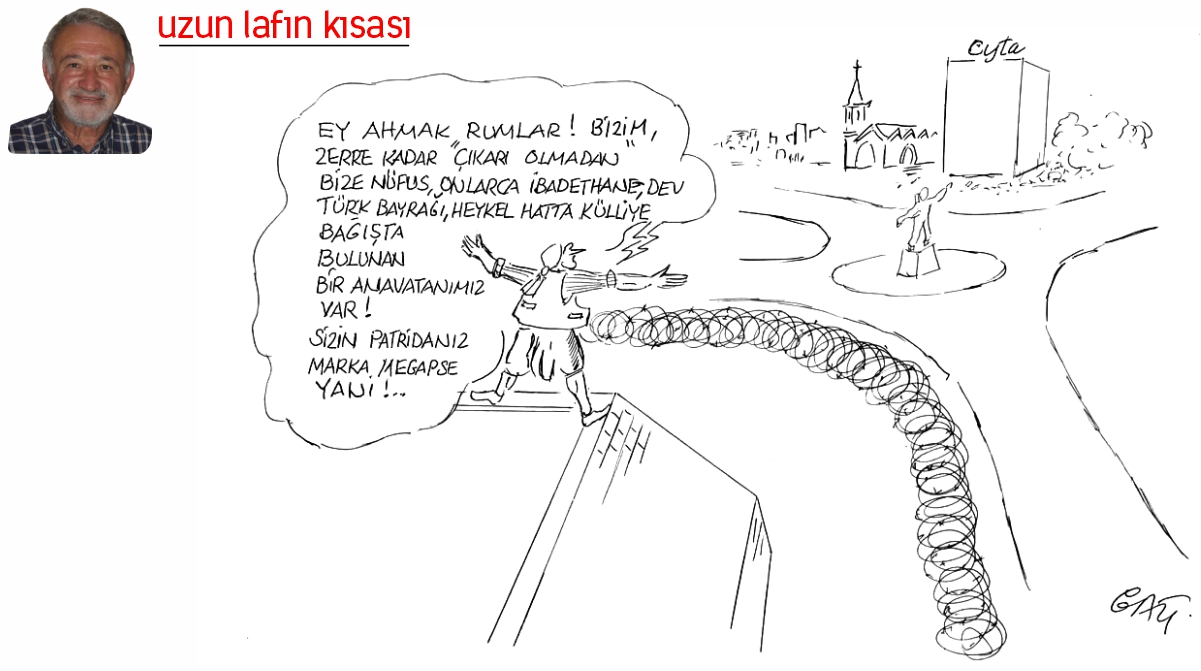 uzun lafın kısası
Cyta
EY AHMAK RUMLAR! BİZİM,
ZERRE KADAR "ÇIKARI OLMADAN"
BİZE NÜFUS, ONLARCA İBADETHANE, DEV
TÜRK BAYRAĞI, HEYKEL HATTA KÜLLİYE
BAĞIŞTA
BULUNAN
BİR ANAVATANIMIZ
VAR!
SİZİN PATRİDANIZ
MARKA MEGAPSE
YANİ!...